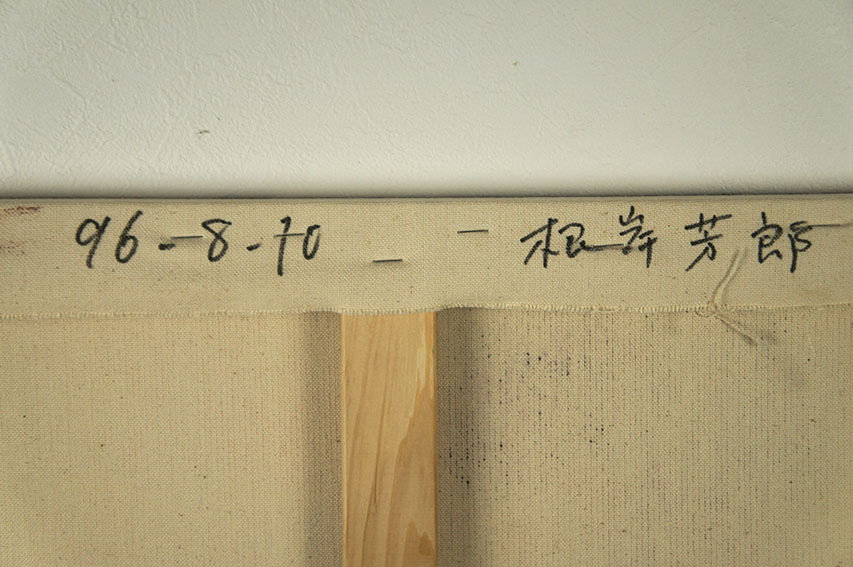 96-8-10 根岸芳郎